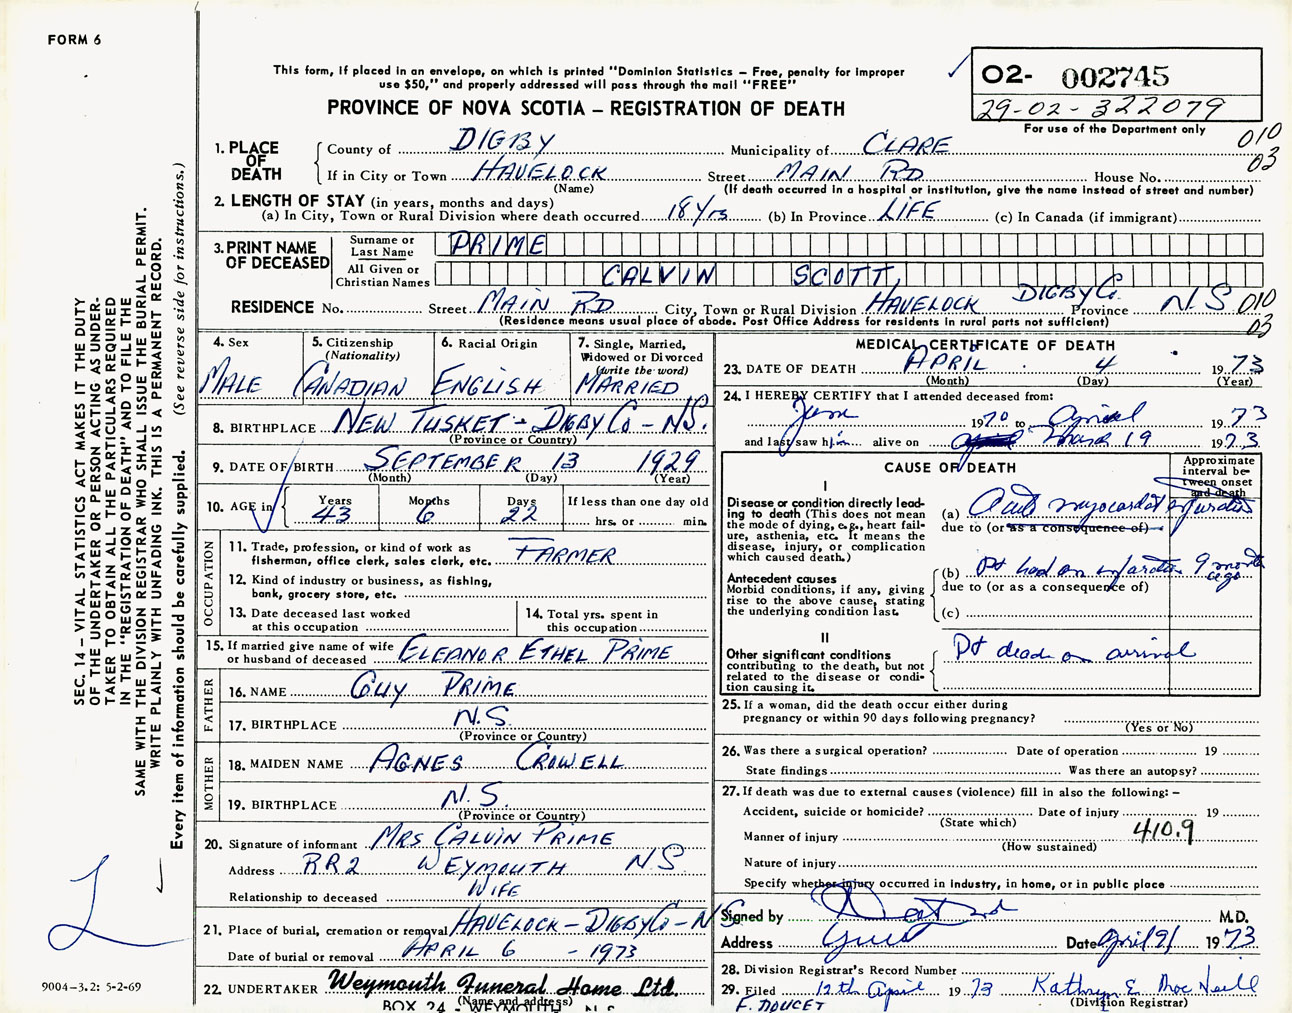 FORM 6
This form, if placed in an envelope, on which is printed "Dominion Statistics — Free, penalty for improper
use $50," and properly addressed will pass through the mail "FREE"
PROVINCE OF NOVA SCOTIA — REGISTRATION OF DEATH
02- 002745
29-02-322079
For use of the Department only
010
03
1. PLACE OF DEATH
County of DIGBY Municipality of CLARE
If in City or Town HAVELOCK Street MAIN RD House No.
(Name) (If death occurred in a hospital or institution, give the name instead of street and number)
2. LENGTH OF STAY (in years, months and days)
(a) In City, Town or Rural Division where death occurred 18 Yrs (b) In Province LIFE (c) In Canada (if immigrant)
3. PRINT NAME OF DECEASED
Surname or Last Name PRIME
All Given or Christian Names CALVIN SCOTT
RESIDENCE No. Street MAIN RD City, Town or Rural Division HAVELOCK DIGBY Co. Province N S 010
03
(Residence means usual place of abode. Post Office Address for residents in rural parts not sufficient)
4. Sex 5. Citizenship (Nationality) 6. Racial Origin 7. Single, Married, Widowed or Divorced (write the word)
MALE CANADIAN ENGLISH MARRIED
8. BIRTHPLACE NEW TUSKET - DIGBY Co - N.S.
(Province or Country)
9. DATE OF BIRTH SEPTEMBER 13 1929
(Month) (Day) (Year)
10. AGE in Years Months Days If less than one day old
43 6 22 hrs. or min.
OCCUPATION
11. Trade, profession, or kind of work as
fisherman, office clerk, sales clerk, etc. FARMER
12. Kind of industry or business, as fishing,
bank, grocery store, etc.
13. Date deceased last worked
at this occupation
14. Total yrs. spent in
this occupation
15. If married give name of wife
or husband of deceased ELEANOR ETHEL PRIME
FATHER
16. NAME GUY PRIME
17. BIRTHPLACE N.S.
(Province or Country)
MOTHER
18. MAIDEN NAME AGNES CROWELL
19. BIRTHPLACE N.S.
(Province or Country)
20. Signature of informant MRS CALVIN PRIME
Address RR2 WEYMOUTH N S
Relationship to deceased WIFE
21. Place of burial, cremation or removal HAVELOCK - DIGBY Co - N S
Date of burial or removal APRIL 6 - 1973
22. UNDERTAKER Weymouth Funeral Home Ltd.
(Name and address)
BOX 24 - WEYMOUTH, N.S.
MEDICAL CERTIFICATE OF DEATH
23. DATE OF DEATH APRIL 4 1973
(Month) (Day) (Year)
24. I HEREBY CERTIFY that I attended deceased from:
June 1970 to April 1973
and last saw him alive on 19 1973
CAUSE OF DEATH
Approximate interval between onset and death
I
Disease or condition directly leading to death (This does not mean the mode of dying, e.g., heart failure, asthenia, etc. It means the disease, injury, or complication which caused death.)
(a) Acute myocardial infarction
due to (or as a consequence of)
Antecedent causes
Morbid conditions, if any, giving rise to the above cause, stating the underlying condition last.
(b) Pt had an infarction 9 months ago
due to (or as a consequence of)
(c)
II
Other significant conditions
contributing to the death, but not related to the disease or condition causing it.
Pt dead on arrival
25. If a woman, did the death occur either during
pregnancy or within 90 days following pregnancy?
(Yes or No)
26. Was there a surgical operation? Date of operation 19
State findings Was there an autopsy?
27. If death was due to external causes (violence) fill in also the following: —
Accident, suicide or homicide? Date of injury 19
(State which)
410.9
Manner of injury
(How sustained)
Nature of injury
Specify whether injury occurred in industry, in home, or in public place
Signed by M.D.
Address Date April 9/ 1973
28. Division Registrar's Record Number
29. Filed 12th April 1973 Kathryn E
F. DOUCET (Division Registrar)
SEC. 14 — VITAL STATISTICS ACT MAKES IT THE DUTY
OF THE UNDERTAKER OR PERSON ACTING AS UNDER-
TAKER TO OBTAIN ALL THE PARTICULARS REQUIRED
IN THE "REGISTRATION OF DEATH" AND TO FILE THE
SAME WITH THE DIVISION REGISTRAR WHO SHALL ISSUE THE BURIAL PERMIT.
WRITE PLAINLY WITH UNFADING INK. THIS IS A PERMANENT RECORD.
Every item of information should be carefully supplied. (See reverse side for instructions.)
9004-3.2: 5-2-69